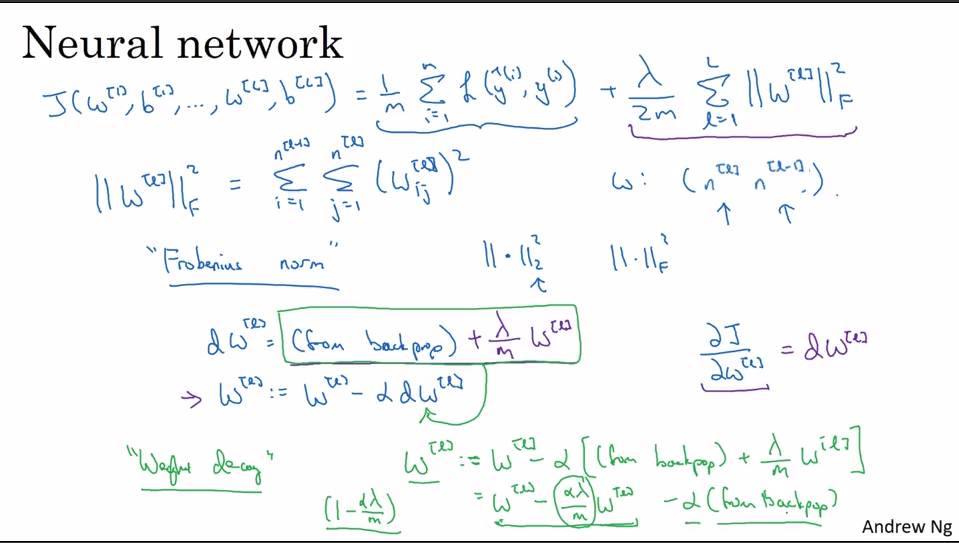 Neural network
J(ω^[1], b^[1], ..., ω^[L], b^[L]) = 1/m Σ_{i=1}^{m} L(ŷ^(i), y^(i)) + λ/2m Σ_{l=1}^{L} ||ω^[l]||_F^2
||ω^[l]||_F^2 = Σ_{i=1}^{n^[l-1]} Σ_{j=1}^{n^[l]} (ω_ij^[l])^2 ω: (n^[l] n^[l-1]).
↑ ↑
"Frobenius norm" ||·||_2^2 ||·||_F^2
↑
dω^[l] = (from backprop) + λ/m ω^[l] ∂J/∂ω^[l] = dω^[l]
→ ω^[l] := ω^[l] - α dω^[l]
"Weight decay" ω^[l] := ω^[l] - α [(from backpop) + λ/m ω^[l]]
(1 - αλ/m) = ω^[l] - αλ/m ω^[l] - α (from backpop)
Andrew Ng